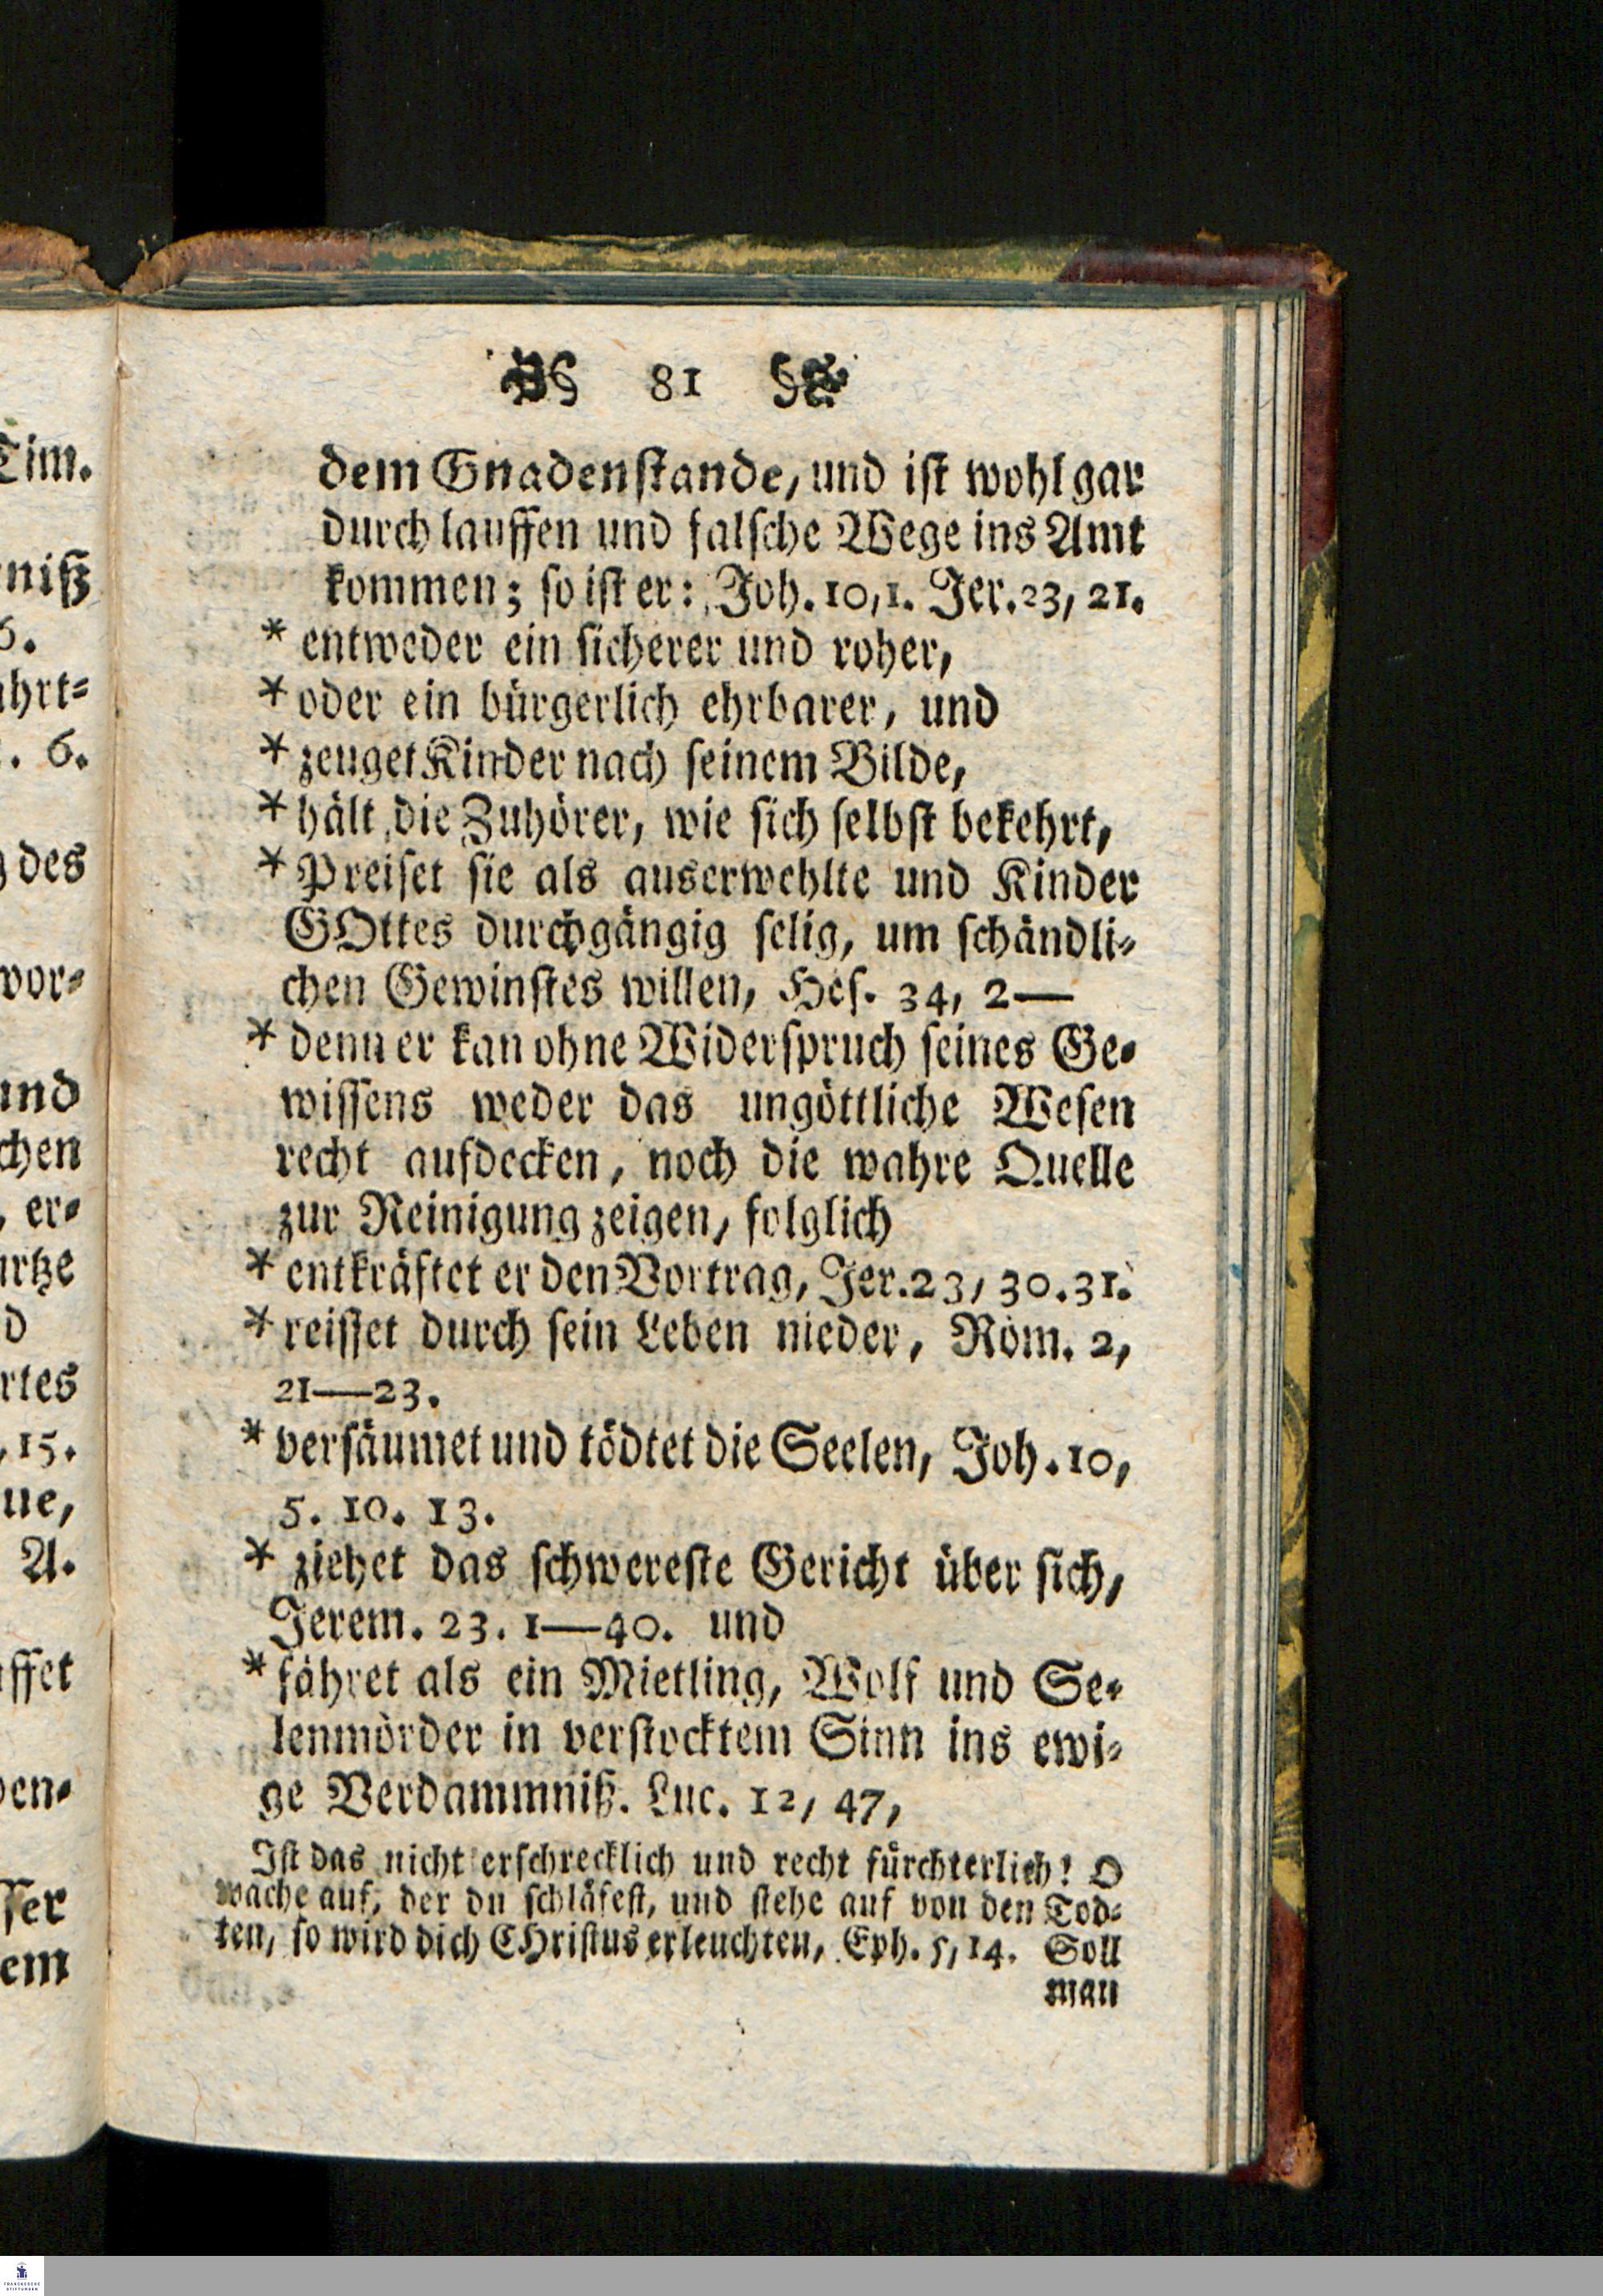 81
dem Gnadenſtande, und iſt wohl gar
durch lauffen und falſche Wege ins Amt
kommen; ſo iſt er: Joh. 10, 1. Jer. 23, 21.
* entweder ein ſicherer und roher,
* oder ein bürgerlich ehrbarer, und
* zeuget Kinder nach ſeinem Bilde,
* hält die Zuhörer, wie ſich ſelbſt bekehrt,
* Preiſet ſie als auserwehlte und Kinder
GOttes durchgängig ſelig, um ſchändli-
chen Gewinſtes willen, Heſ. 34, 2—
* denn er kan ohne Widerſpruch ſeines Ge-
wiſſens weder das ungöttliche Weſen
recht aufdecken, noch die wahre Quelle
zur Reinigung zeigen, folglich
* entkräftet er den Vortrag, Jer. 23, 30. 31.
* reiſſet durch ſein Leben nieder, Röm. 2,
21—23.
* verſäumet und tödtet die Seelen, Joh. 10,
5. 10. 13.
* ziehet das ſchwereſte Gericht über ſich,
Jerem. 23. 1—40. und
* fähret als ein Mietling, Wolf und Se-
lenmörder in verſtocktem Sinn ins ewi-
ge Verdammniß. Luc. 12, 47,
Iſt das nicht erſchrecklich und recht fürchterlich! O
wache auf, der du ſchläfeſt, und ſtehe auf von den Tod-
ten, ſo wird dich CHriſtus erleuchten, Eph. 5, 14. Soll
man
Tim.
niß
6.
ahrt-
. 6.
des
wor-
und
chen
, er-
urtze
d
rtes
, 15.
ue,
A.
ffet
en-
ſſer
em
FRANCKESCHE
STIFTUNGEN